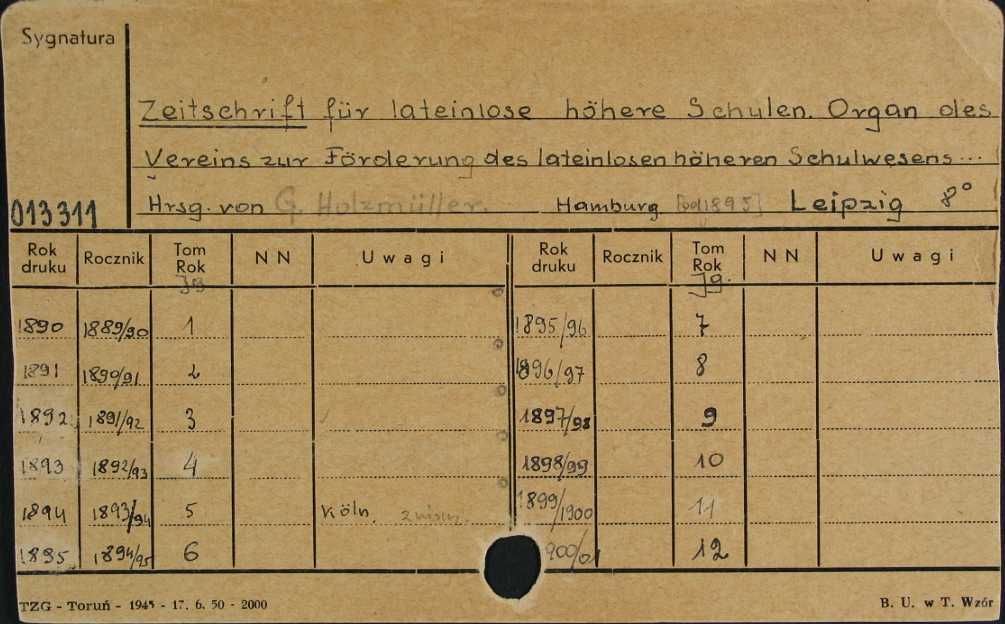 Sygnatura
Zeitschrift für lateinlose höhere Schulen. Organ des
Vereins zur Förderung des lateinlosen höheren Schulwesens...
013311 Hrsg. von G. Holzmüller. Hamburg [od 1895] Leipzig 8°
Rok druku Rocznik Tom Rok NN Uwagi Rok druku Rocznik Tom Rok NN Uwagi
Jg. Jg.
1890 1889/90 1 1895/96 7
1891 1890/91 2 1896/97 8
1892 1891/92 3 1897/98 9
1893 1892/93 4 1898/99 10
1894 1893/94 5 Köln. 1899/1900 11
1895 1894/95 6 900/01 12
TZG - Toruń - 1945 - 17. 6. 50 - 2000 B. U. w T. Wzór